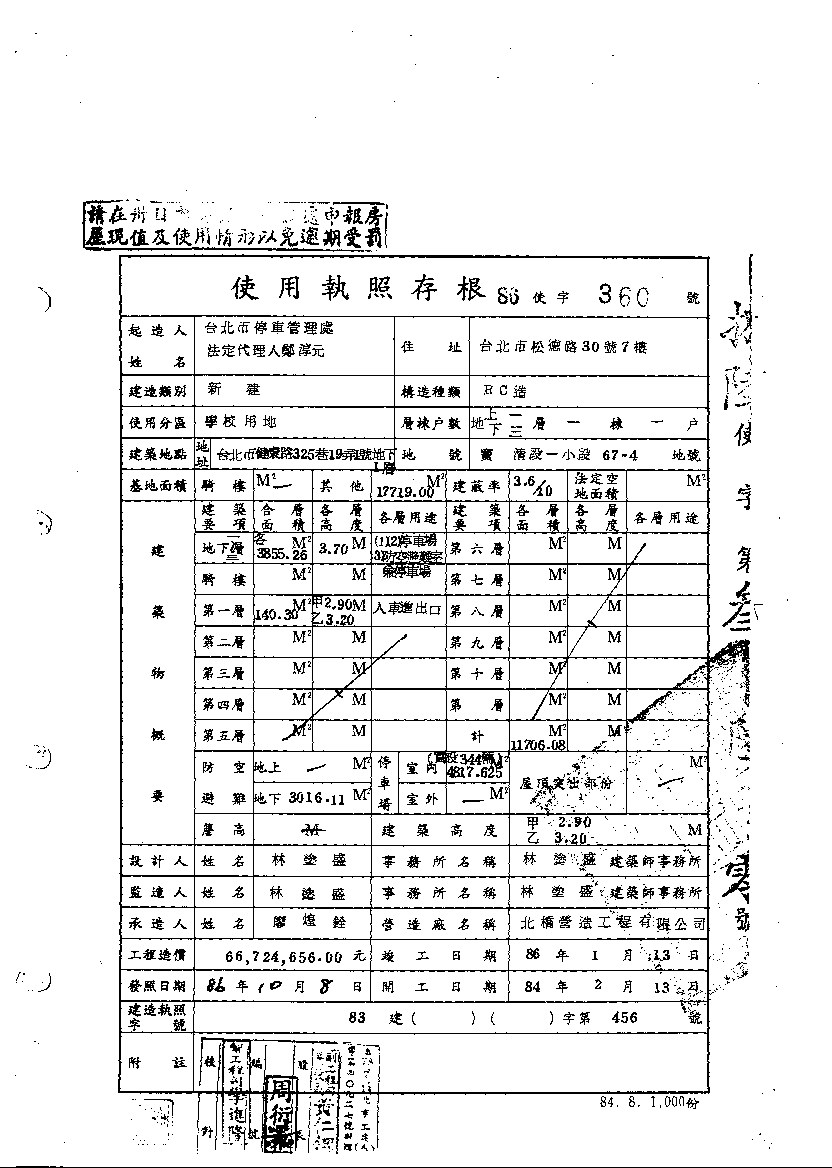 請在 日 申報房
屋現值及使用情形以免逾期受罰
使用執照存根 86 使字 360 號
起造人 姓名 台北市停車管理處 法定代理人鄭淳元 住址 台北市松德路30號7樓
建造類別 新建 構造種類 RC造
使用分區 學校用地 層棟戶數 地上一下三層一棟一戶
建築地點 地址 台北市健康路325巷19弄1號地下1層 地號 寶清段一小段 67-4 地號
基地面積 騎樓 M² — 其他 17719.00 M² 建蔽率 3.6/10 法定空地面積 M²
建築物概要 建築要項 合層面積 各層高度 各層用途 建築要項 各層面積 各層高度 各層用途
地下一二三層 各 3855.26 M² 3.70 M (1)(2)停車場 (3)防空避難室兼停車場 第六層 M² M
騎樓 M² M 第七層 M² M
第一層 140.30 M² 甲2.90 乙3.20 M 人車進出口 第八層 M² M
第二層 M² M 第九層 M² M
第三層 M² M 第十層 M² M
第四層 M² M 第 層 M² M
第五層 M² M 計 11706.08 M² M
防空避難 地上 — M² 停車場 室內 (實設344輛) 4817.625 M² 屋頂突出部份 — M²
地下 3016.11 M² 室外 — M²
簷高 M 建築高度 甲 2.90 乙 3.20 M
設計人 姓名 林塗盛 事務所名稱 林塗盛 建築師事務所
監造人 姓名 林塗盛 事務所名稱 林塗盛 建築師事務所
承造人 姓名 廖煌銓 營造廠名稱 北橋營造工程有限公司
工程造價 66,724,656.00 元 竣工日期 86 年 1 月 13 日
發照日期 86 年 10 月 8 日 開工日期 84 年 2 月 13 日
建造執照字號 83 建( )( )字第 456 號
附註
周衍
84. 8. 1,000份
使
字
第
叁
號